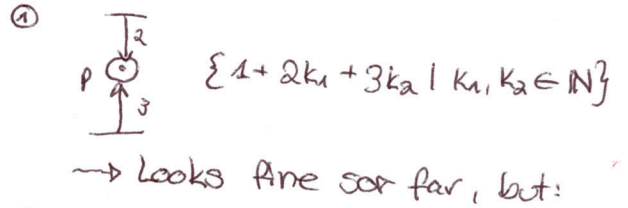 ①
2
p
3
{1 + 2k₁ + 3k₂ | k₁, k₂ ∈ ℕ}
⇝ Looks fine sor far, but: